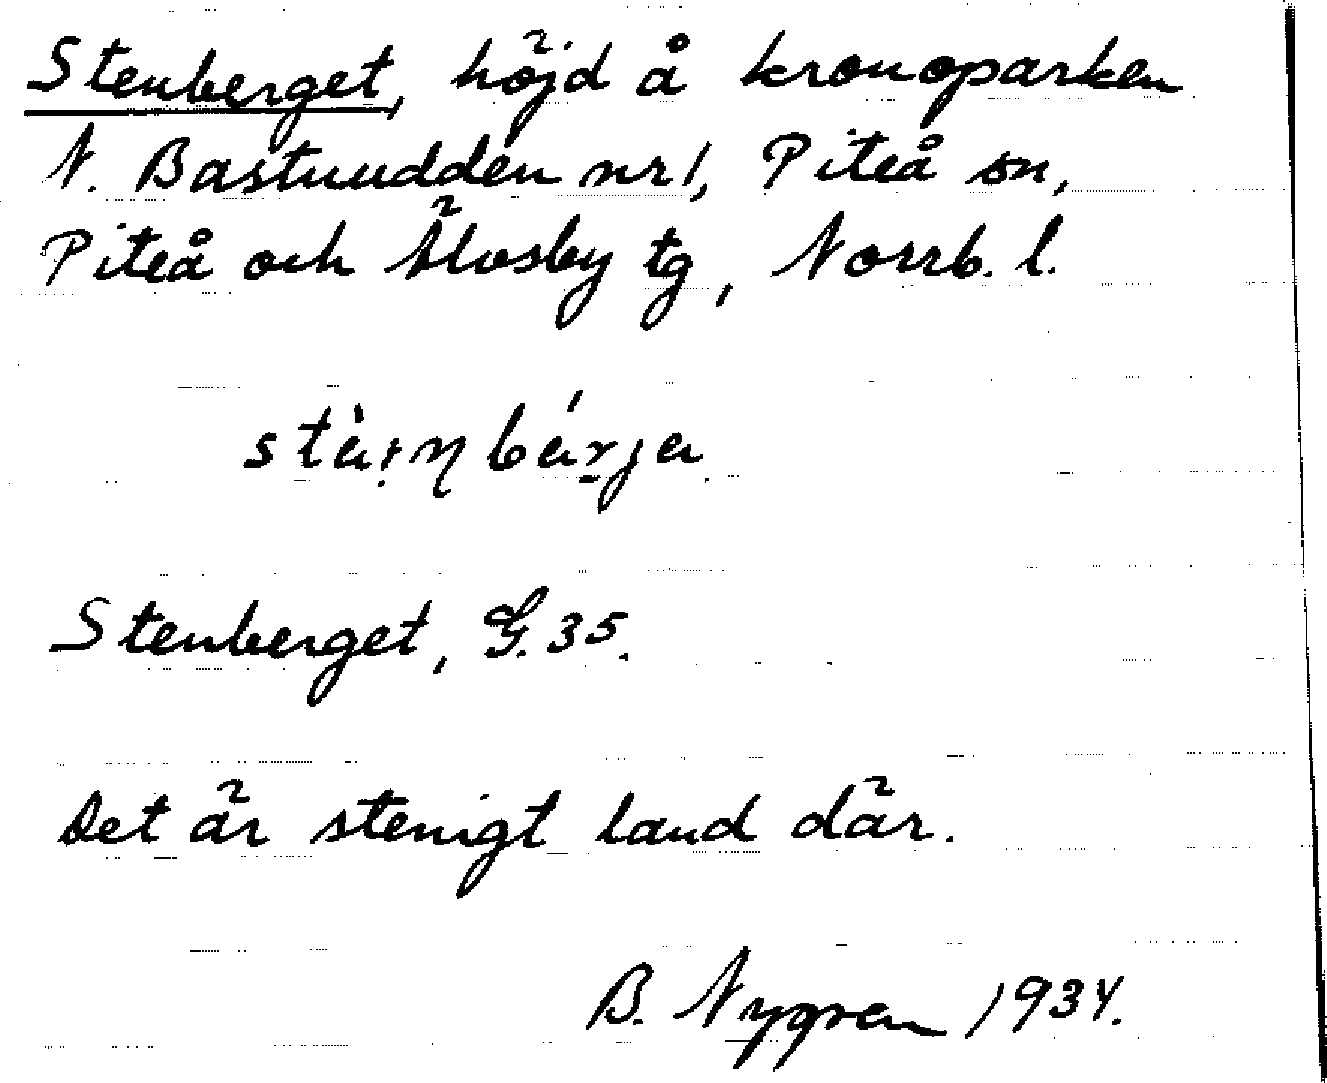 Stenberget, höjd å kronoparken
N. Bastuudden nr 1, Piteå sn,
Piteå och Älvsby tg, Norrb. l.
Stenberget, G. 35.
Det är stenigt land där.
B. Nygren 1934.